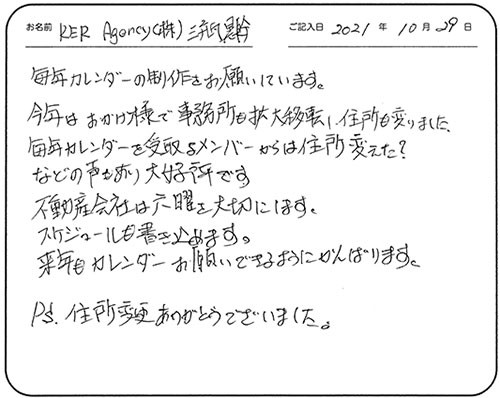 お名前 RER Agency(株) ご記入日 2021年10月29日
毎年カレンダーの制作をお願いしています。
今年はおかげ様で事務所も拡大移転し住所も変りました
毎年カレンダーを受取るメンバーからは住所変えた?
などの声もあり大好評です
不動産会社は六曜を大切にします。
スケジュールも書き込めます。
来年もカレンダーお願いできるようにがんばります。
P.S. 住所変更ありがとうございました。